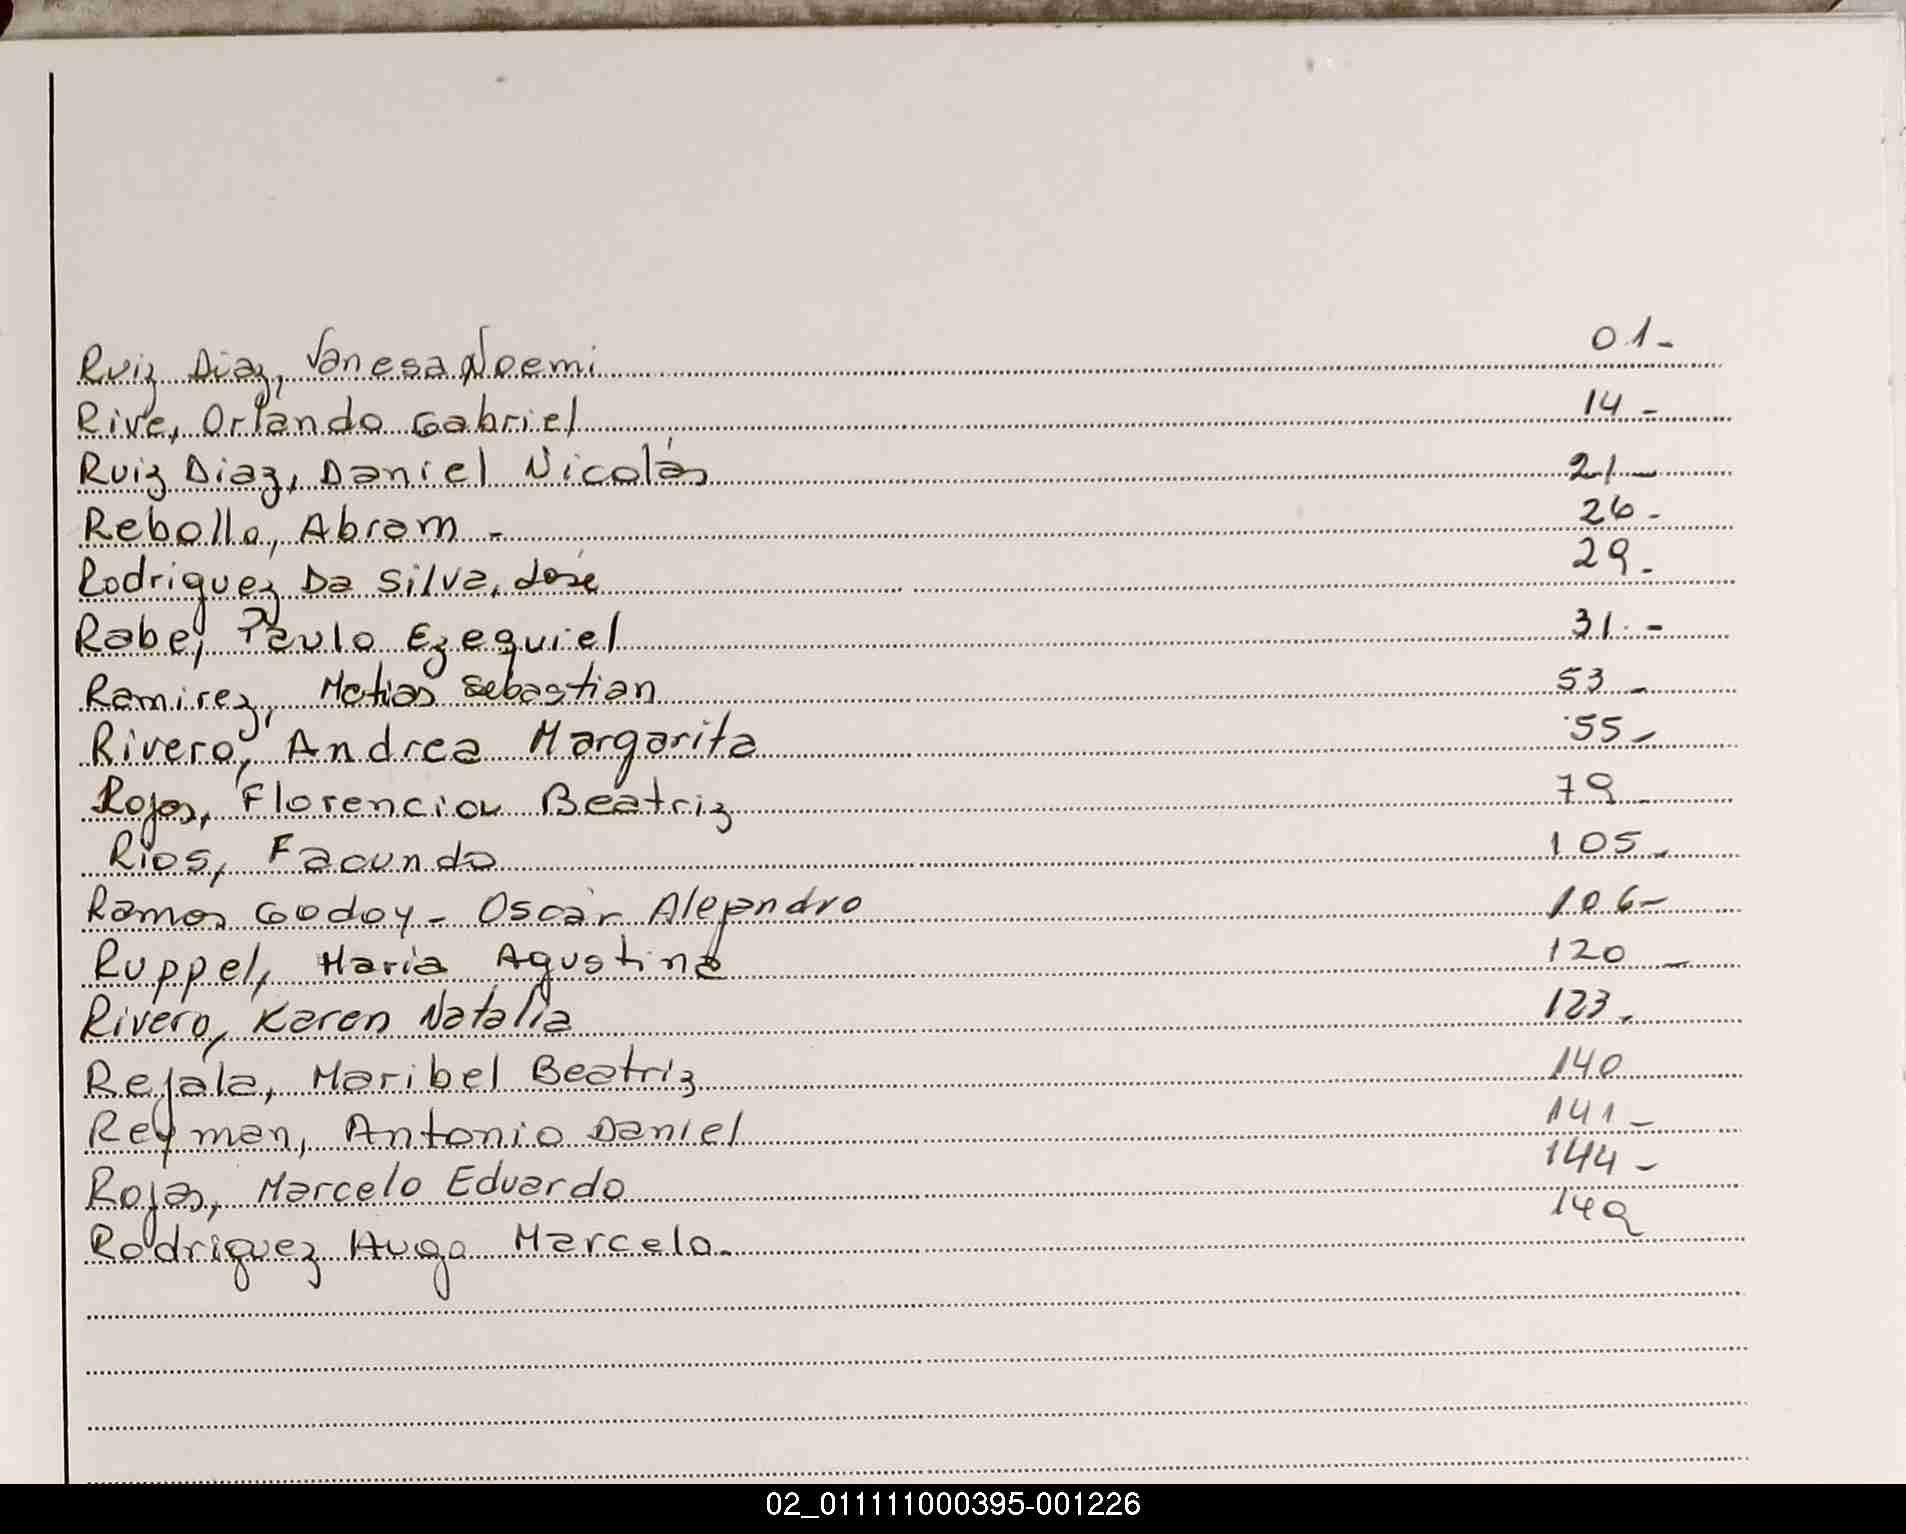 Ruiz Diaz, Vanesa Noemi 01-
Rive, Orlando Gabriel 14-
Ruiz Diaz, Daniel Nicolás 21-
Rebollo, Abram - 26-
Rodriguez Da Silva, José 29.
Rabe, Paulo Ezequiel 31.-
Ramirez, Matias Sebastian 53-
Rivero, Andrea Margarita 55-
Rojas, Florencia Beatriz 79-
Rios, Facundo 105-
Ramos Godoy - Oscar Alejandro 106-
Ruppel, Maria Agustina 120-
Rivero, Karen Natalia 123.
Rejala, Maribel Beatriz 140
Reyman, Antonio Daniel 141-
Rojas, Marcelo Eduardo 144-
Rodriguez Hugo Marcelo. 149
02_011111000395-001226